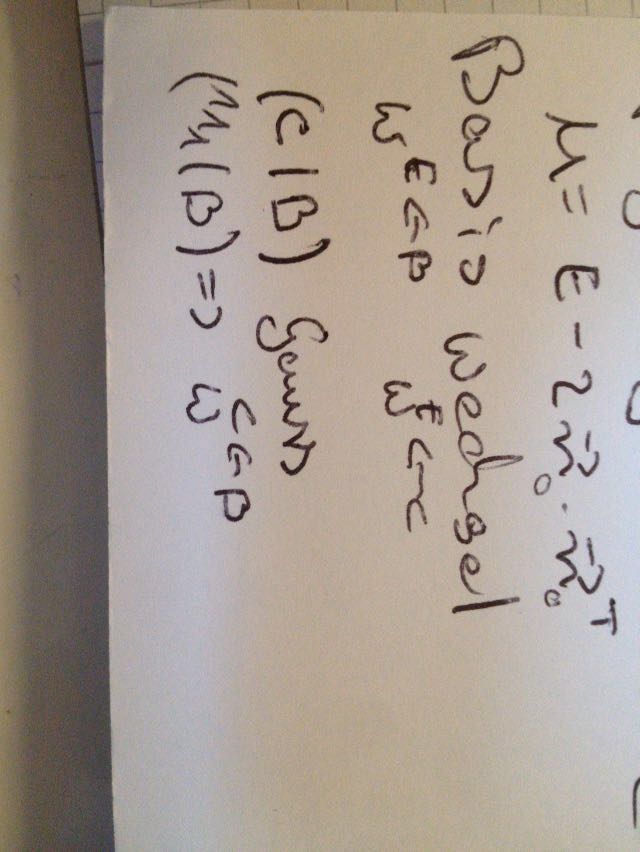 M = E - 2 n⃗₀ · n⃗₀ᵀ
Basis Wechsel
W E←B W E←C
(C|B) Gauss
W C←B